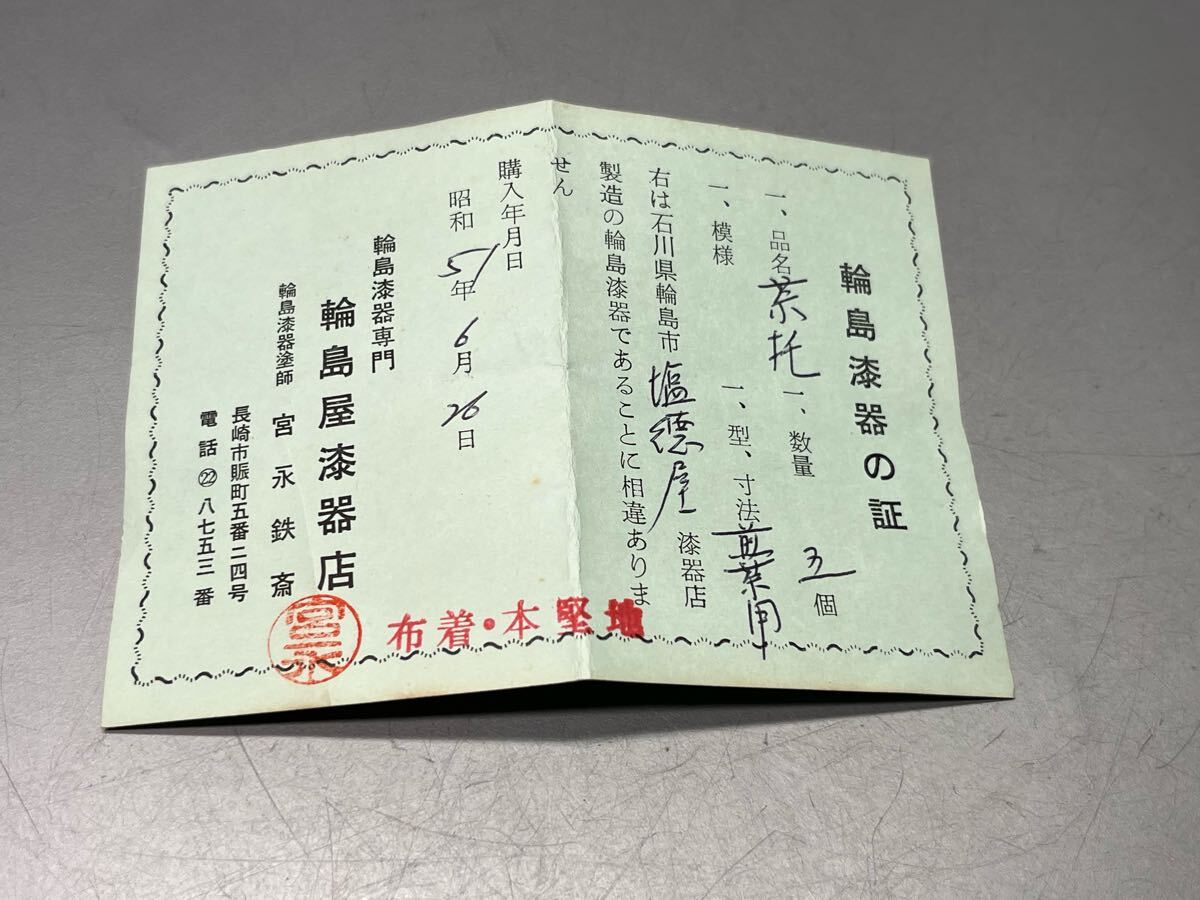 輪島漆器の証
一、品名 茶托 一、数量 五個
一、模様 一、型、寸法 煎茶用
右は石川県輪島市 塩徳屋 漆器店
製造の輪島漆器であることに相違ありま
せん
購入年月日
昭和51年6月26日
輪島漆器専門
輪島屋漆器店
輪島漆器塗師 宮永鉄斎
長崎市賑町五番二四号
電話㉒八七五三番
布着・本堅地
宮永